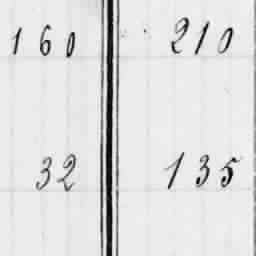 160 210
32 135